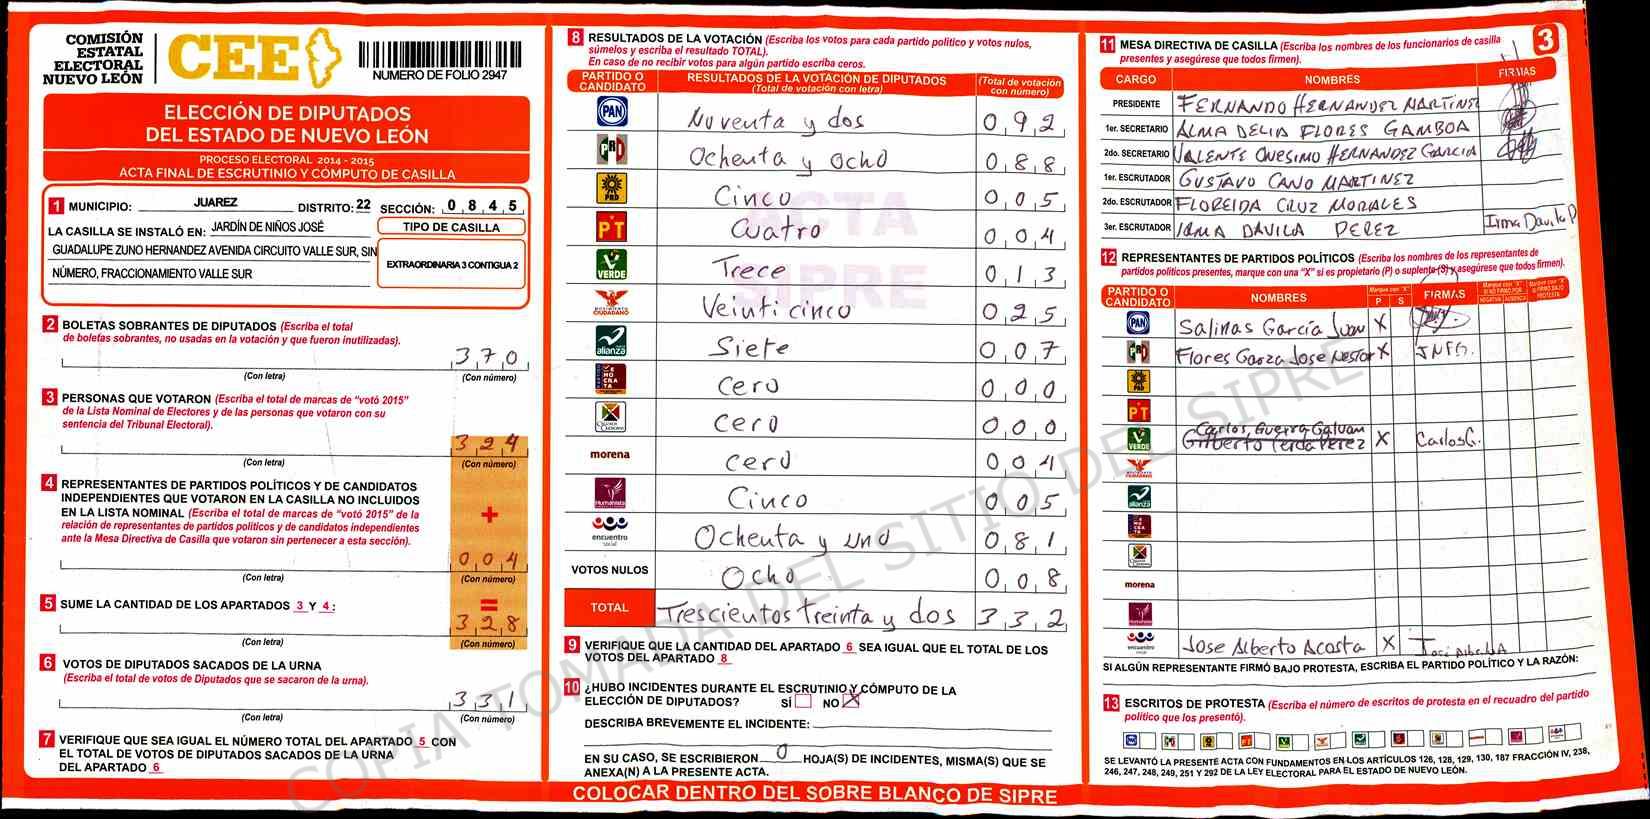 COMISIÓN
ESTATAL
ELECTORAL
NUEVO LEÓN
CEE
NUMERO DE FOLIO 2947
ELECCIÓN DE DIPUTADOS
DEL ESTADO DE NUEVO LEÓN
PROCESO ELECTORAL 2014 - 2015
ACTA FINAL DE ESCRUTINIO Y CÓMPUTO DE CASILLA
1 MUNICIPIO: JUAREZ DISTRITO: 22 SECCIÓN: 0 8 4 5
LA CASILLA SE INSTALÓ EN: JARDÍN DE NIÑOS JOSÉ
GUADALUPE ZUNO HERNANDEZ AVENIDA CIRCUITO VALLE SUR, SIN
NÚMERO, FRACCIONAMIENTO VALLE SUR
TIPO DE CASILLA
EXTRAORDINARIA 3 CONTIGUA 2
2 BOLETAS SOBRANTES DE DIPUTADOS (Escriba el total
de boletas sobrantes, no usadas en la votación y que fueron inutilizadas).
3 7 0
(Con letra) (Con número)
3 PERSONAS QUE VOTARON (Escriba el total de marcas de "votó 2015"
de la Lista Nominal de Electores y de las personas que votaron con su
sentencia del Tribunal Electoral).
3 2 4
(Con letra) (Con número)
4 REPRESENTANTES DE PARTIDOS POLÍTICOS Y DE CANDIDATOS
INDEPENDIENTES QUE VOTARON EN LA CASILLA NO INCLUIDOS
EN LA LISTA NOMINAL (Escriba el total de marcas de "votó 2015" de la
relación de representantes de partidos políticos y de candidatos independientes
ante la Mesa Directiva de Casilla que votaron sin pertenecer a esta sección).
+
0 0 4
(Con letra) (Con número)
5 SUME LA CANTIDAD DE LOS APARTADOS 3 Y 4:
=
3 2 8
(Con letra) (Con número)
6 VOTOS DE DIPUTADOS SACADOS DE LA URNA
(Escriba el total de votos de Diputados que se sacaron de la urna).
3 3 1
(Con letra) (Con número)
7 VERIFIQUE QUE SEA IGUAL EL NÚMERO TOTAL DEL APARTADO 5 CON
EL TOTAL DE VOTOS DE DIPUTADOS SACADOS DE LA URNA
DEL APARTADO 6
8 RESULTADOS DE LA VOTACIÓN (Escriba los votos para cada partido político y votos nulos,
súmelos y escriba el resultado TOTAL).
En caso de no recibir votos para algún partido escriba ceros.
PARTIDO O CANDIDATO RESULTADOS DE LA VOTACIÓN DE DIPUTADOS (Total de votación con letra) (Total de votación con número)
PAN Noventa y dos 0 9 2
PRI Ochenta y Ocho 0 8 8
PRD Cinco 0 0 5
PT Cuatro 0 0 4
VERDE Trece 0 1 3
MOVIMIENTO CIUDADANO Veinticinco 0 2 5
alianza Siete 0 0 7
cero 0 0 0
cero 0 0 0
morena cero 0 0 4
Humanista Cinco 0 0 5
encuentro social Ochenta y uno 0 8 1
VOTOS NULOS Ocho 0 0 8
TOTAL Trescientos treinta y dos 3 3 2
ACTA
SIPRE
9 VERIFIQUE QUE LA CANTIDAD DEL APARTADO 6 SEA IGUAL QUE EL TOTAL DE LOS
VOTOS DEL APARTADO 8
10 ¿HUBO INCIDENTES DURANTE EL ESCRUTINIO Y CÓMPUTO DE LA
ELECCIÓN DE DIPUTADOS? SÍ NO X
DESCRIBA BREVEMENTE EL INCIDENTE:
EN SU CASO, SE ESCRIBIERON 0 HOJA(S) DE INCIDENTES, MISMA(S) QUE SE
ANEXA(N) A LA PRESENTE ACTA.
COLOCAR DENTRO DEL SOBRE BLANCO DE SIPRE
11 MESA DIRECTIVA DE CASILLA (Escriba los nombres de los funcionarios de casilla
presentes y asegúrese que todos firmen).
3
CARGO NOMBRES FIRMAS
PRESIDENTE FERNANDO HERNANDEZ MARTINEZ
1er. SECRETARIO ALMA DELIA FLORES GAMBOA
2do. SECRETARIO VALENTE ONESIMO HERNANDEZ GARCIA
1er. ESCRUTADOR GUSTAVO CANO MARTINEZ
2do. ESCRUTADOR FLOREIDA CRUZ MORALES
3er. ESCRUTADOR IRMA DAVILA PEREZ Irma Davila P
12 REPRESENTANTES DE PARTIDOS POLÍTICOS (Escriba los nombres de los representantes de
partidos políticos presentes, marque con una "X" si es propietario (P) o suplente (S) y asegúrese que todos firmen).
PARTIDO O CANDIDATO NOMBRES Marque con "X" P S FIRMAS Marque con "X" SI NO FIRMÓ POR NEGATIVA AUSENCIA Marque con "X" SI FIRMÓ BAJO PROTESTA
PAN Salinas García Juan X
PRI Flores Garza Jose Nestor X JNFG.
PRD
PT
Carlos Guerra Galvan
VERDE Gilberto Cerda Perez X Carlos G.
alianza
morena
Humanista
encuentro social Jose Alberto Acosta X Jose Alberto A
SI ALGÚN REPRESENTANTE FIRMÓ BAJO PROTESTA, ESCRIBA EL PARTIDO POLÍTICO Y LA RAZÓN:
13 ESCRITOS DE PROTESTA (Escriba el número de escritos de protesta en el recuadro del partido
político que los presentó).
SE LEVANTÓ LA PRESENTE ACTA CON FUNDAMENTOS EN LOS ARTÍCULOS 126, 128, 129, 130, 187 FRACCIÓN IV, 238,
246, 247, 248, 249, 251 Y 292 DE LA LEY ELECTORAL PARA EL ESTADO DE NUEVO LEÓN.
COPIA TOMADA DEL SITIO DEL SIPRE